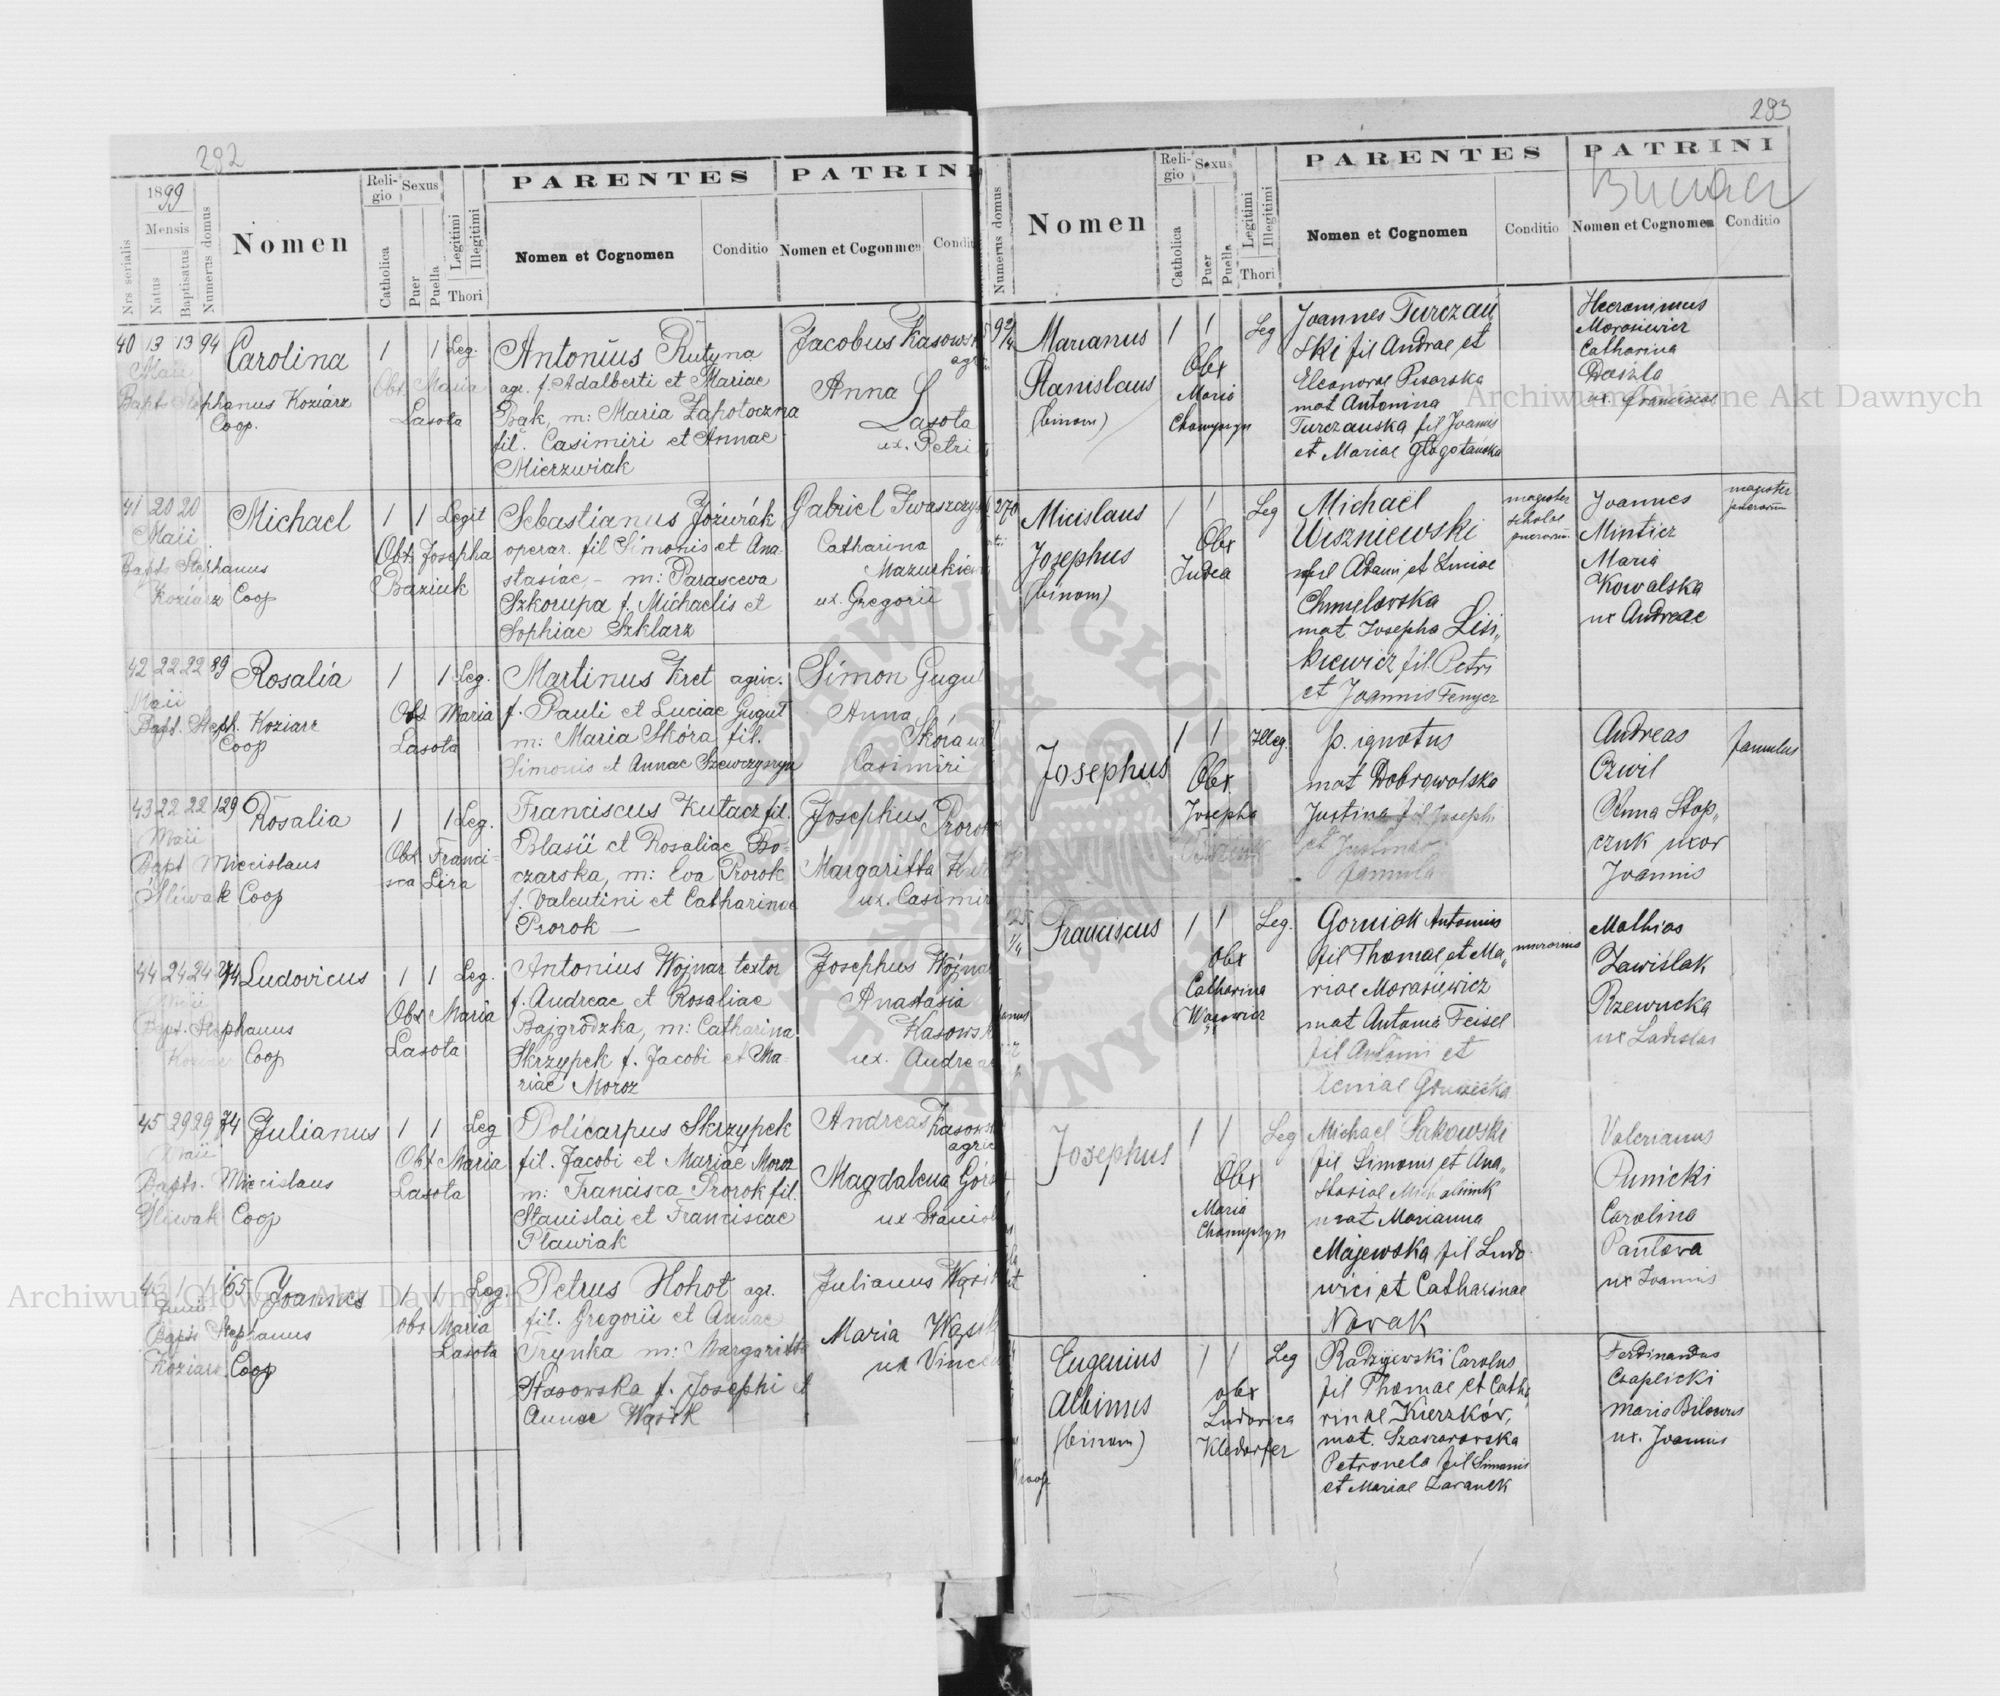 292
1899
Mensis
Nrs serialis
Natus
Baptisatus
Numerus domus
Nomen
Religio
Catholica
Sexus
Puer
Puella
Legitimi
Illegitimi
Thori
PARENTES
Nomen et Cognomen
Conditio
PATRINI
Nomen et Cogonmen
40 13 13 94 Carolina 1 1 Leg.
Maii
Bapt. Stephanus Koziarz
Coop.
Obst. Maria
Lasota
Antonius Rutyna
agr. f. Adalberti et Mariae
Bąk, m: Maria Zapotoczna
fil. Casimiri et Annae
Mierzwiak
Jacobus Kasowski
Anna
Lasota
ux. Petri
41 20 20 Michael 1 1 Legit
Maii
Bapt. Stephanus
Koziarz Coop
Obst. Josepha
Baziuk
Sebastianus Józwiák
operar. fil Simonis et Ana-
stasiae - m: Parasceva
Szkorupa f. Michaelis et
Sophiae Szklarz
Gabriel
Catharina
ux. Gregorii
42 22 22 89 Rosalia 1 1 Leg.
Maii
Bapt. Steph. Koziarz
Coop
Obst Maria
Lasota
Martinus Kret agric.
f. Pauli et Luciae Gugul
m: Maria Skóra fil.
Simonis et Annae Szewczyszyn
Simon Gugul
Anna
Skóra ux
Casimiri
43 22 22 129 Rosalia 1 1 Leg.
Maii
Bapt Miecislaus
Śliwak Coop
Obst Franci-
sca Lira
Franciscus Kutacz fil.
Blasii et Rosaliae Bo-
czarska, m: Eva Prorok
f. Valentini et Catharinae
Prorok
Josephus Prorok
Margaritta
ux. Casimiri
44 24 24 74 Ludovicus 1 1 Leg.
Maii
Bapt. Stephanus
Coop
Obst Maria
Lasota
Antonius Wojnar textor
f. Andreae et Rosaliae
Bajgrodzka, m: Catharina
Skrzypek f. Jacobi et Ma-
riae Moroz
Josephus Wojnar
Anastasia
Kasowsk
ux. Andreae
45 29 29 74 Julianus 1 1 Leg
Maii
Bapt. Miecislaus
Śliwak Coop
Obst Maria
Lasota
Policarpus Skrzypek
fil. Jacobi et Mariae Moroz
m: Francisca Prorok fil.
Stanislai et Franciscae
Pławiak
Andreas Kasowski
Magdalena
ux Stanisl
46 1 1 165 Joannes 1 1 Leg.
Junii
Bapt Stephanus
Koziarz Coop
Obst Maria
Lasota
Petrus Hohot agr.
fil. Gregorii et Annae
Trynka m: Margaritta
Stasowska f. Josephi et
Annae Wąsik
Julianus Wąsik
Maria Wąsik
ux Vincen
293
Numerus domus
Nomen
Religio
Catholica
Sexus
Puer
Puella
Legitimi
Illegitimi
Thori
PARENTES
Nomen et Cognomen
Conditio
PATRINI
Nomen et Cognomen
Conditio
Marianus 1 1 Leg
Stanislaus
(binom)
Obst
Maria
Joannes Turczań
ski fil Andrae et
Eleonorae Pisarska
mat Antonina
Turczańska fil Joannis
et Mariae
Hieronimus
Morosiewicz
Catharina
ux Franciscae
270 Micislaus 1 1 Leg
Josephus
(binom)
Obst
Judea
Michaël
Wiszniewski
fil Adami et Luciae
Chmielovska
mat Josepha Lisi„
kiewicz fil. Petri
et Joannis Fenycz
magister
scholae
puerorum
Joannes
Minticz
Maria
Kowalska
ux Andreae
magister
puerorum
Josephus 1 1 Illeg.
Obst.
Josepha
p. ignotus
mat Dobrowolska
Justina fil Josephi
et Justinae
famula
Andreas
Czwil
Anna Stop„
czuk uxor
Joannis
famulus
25 1/4 Franciscus 1 1 Leg.
Obst
Catharina
Gorniak Antonius
fil Thomae et Ma„
riae Morasiewicz
mat Antonia Feisel
fil Antonii et
murarius
Mathias
Zawiślak
Rzewucka
ux Ladislai
Josephus 1 1 Leg
Obst
Maria
Michael Sakowski
fil Simonis et Ana„
stasiae Michalniuk
mat Marianna
Majewska fil Ludo
wici et Catharinae
Novak
Valerianus
Punicki
Carolina
Pantova
ux Joannis
Eugenius 1 1 Leg
Albinus
(binom)
obst
Ludovica
Kledorfer
Radzijewski Carolus
fil Thomae et Catha
rinae Kierzków,
mat. Szaszarovska
Petronela fil Simonis
et Mariae Zaranek
Ferdinandus
Czaplicki
Maria Bilowus
ux. Joannis
Archiwum Główne Akt Dawnych
Archiwum Główne Akt Dawnych
ARCHIWUM GŁÓWNE
AKT DAWNYCH